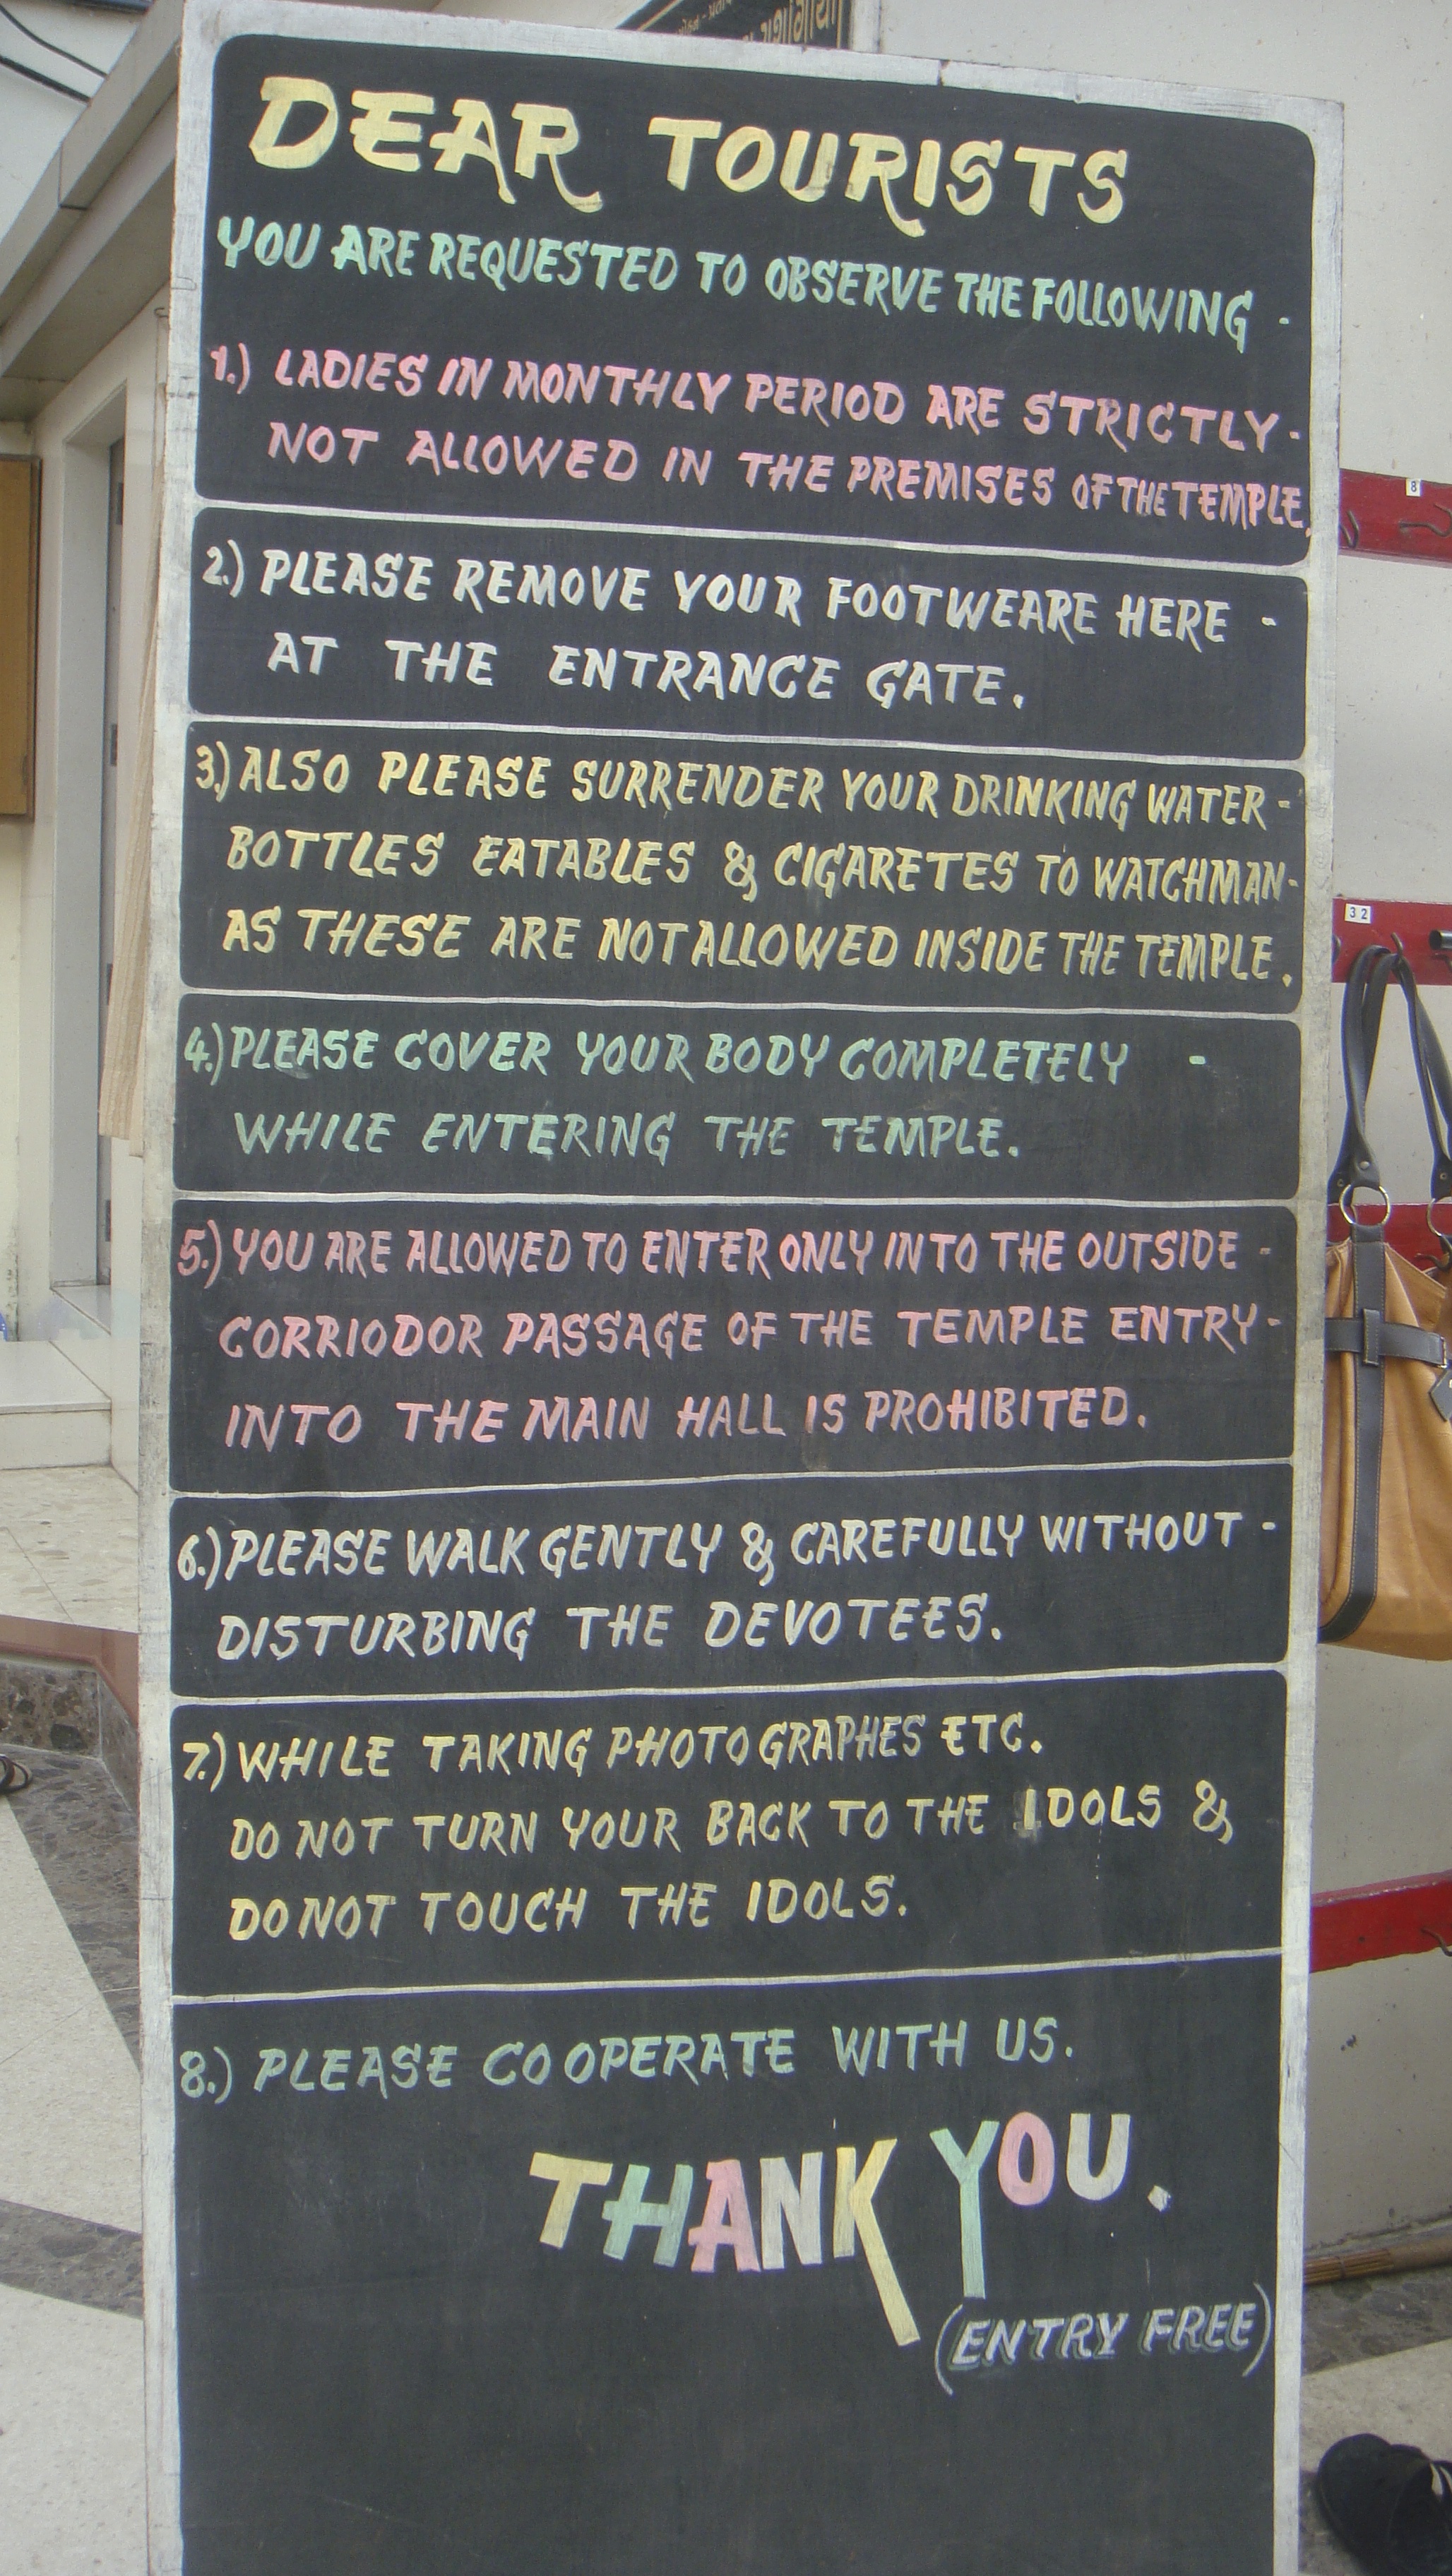 DEAR TOURISTS
YOU ARE REQUESTED TO OBSERVE THE FOLLOWING -
1.) LADIES IN MONTHLY PERIOD ARE STRICTLY -
NOT ALLOWED IN THE PREMISES OF THE TEMPLE.
2.) PLEASE REMOVE YOUR FOOTWEARE HERE -
AT THE ENTRANCE GATE.
3.) ALSO PLEASE SURRENDER YOUR DRINKING WATER -
BOTTLES EATABLES & CIGARETES TO WATCHMAN -
AS THESE ARE NOT ALLOWED INSIDE THE TEMPLE.
4.) PLEASE COVER YOUR BODY COMPLETELY -
WHILE ENTERING THE TEMPLE.
5.) YOU ARE ALLOWED TO ENTER ONLY INTO THE OUTSIDE -
CORRIODOR PASSAGE OF THE TEMPLE ENTRY -
INTO THE MAIN HALL IS PROHIBITED.
6.) PLEASE WALK GENTLY & CAREFULLY WITHOUT -
DISTURBING THE DEVOTEES.
7.) WHILE TAKING PHOTOGRAPHES ETC.
DO NOT TURN YOUR BACK TO THE IDOLS &
DO NOT TOUCH THE IDOLS.
8.) PLEASE COOPERATE WITH US.
THANK YOU.
(ENTRY FREE)
8
32